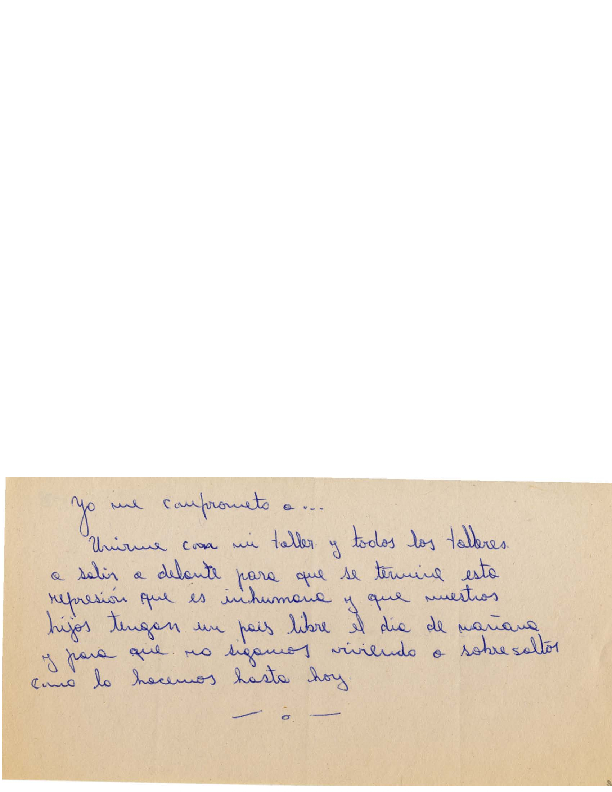 Yo me comprometo a...
Unirme con mi taller y todos los talleres
a salir a delante para que se termine esta
represión que es inhumana y que nuestros
hijos tengan un pais libre el dia de mañana
y para que no sigamos viviendo a sobresaltos
como lo hacemos hasta hoy
— o —